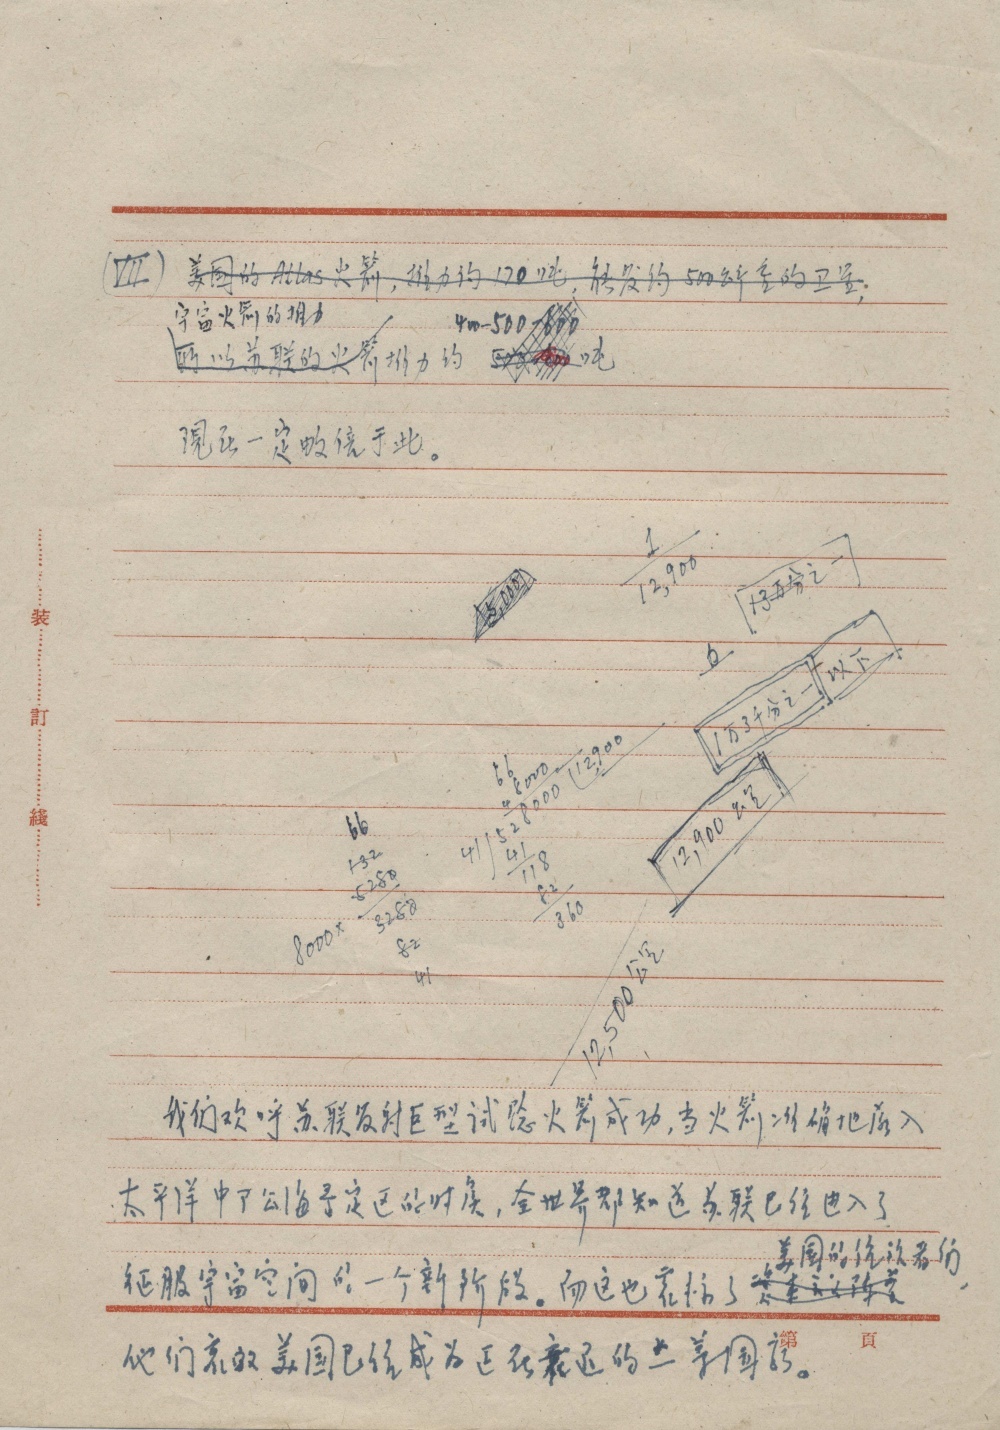 (VII) 美国的 Atlas 火箭,推力约 170 吨,能发约 500 公斤重的卫星;
宇宙火箭的推力 400-500-600
所以苏联的火箭推力约 吨
現在一定数倍于此。
1
12,900
13万分之一
15,000
6
1万3千分之一 以下
12,900 公里
66
8000
12,900
41 528000
41
118
82
360
66
132
5280
8000 x 5280
82
41
12,500 公里
装
訂
綫
我们欢呼苏联发射巨型试验火箭成功,当火箭准确地落入
太平洋中了公海予定区的时侯,全世界都知道苏联已经进入了
美国的统治者们,
征服宇宙空间的一个新阶段。而这也衰扬了
第 頁
他们哀叹美国已经成为正在衰退的二等国家。